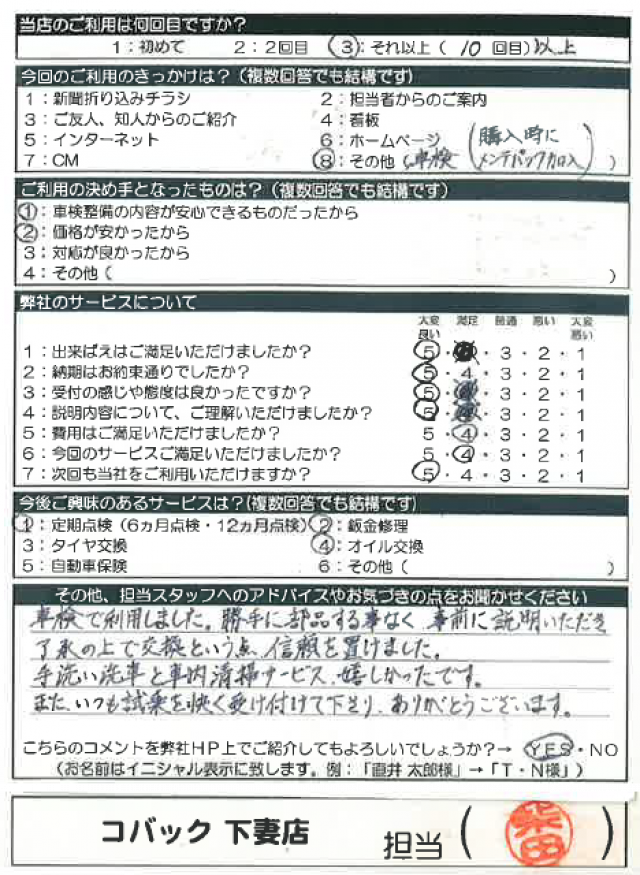 当店のご利用は何回目ですか？
1：初めて　2：2回目　③：それ以上（ 10 回目）以上
今回のご利用のきっかけは？（複数回答でも結構です）
1：新聞折り込みチラシ　2：担当者からのご案内
3：ご友人、知人からのご紹介　4：看板
5：インターネット　6：ホームページ
7：CM　⑧：その他（車検（購入時にメンテパック加入））
ご利用の決め手となったものは？（複数回答でも結構です）
①：車検整備の内容が安心できるものだったから
②：価格が安かったから
3：対応が良かったから
4：その他（　）
弊社のサービスについて
大変良い　満足　普通　悪い　大変悪い
1：出来ばえはご満足いただけましたか？　5・4・3・2・1
2：納期はお約束通りでしたか？　5・4・3・2・1
3：受付の感じや態度は良かったですか？　5・4・3・2・1
4：説明内容について、ご理解いただけましたか？　5・4・3・2・1
5：費用はご満足いただけましたか？　5・4・3・2・1
6：今回のサービスご満足いただけましたか？　5・4・3・2・1
7：次回も当社をご利用いただけますか？　5・4・3・2・1
今後ご興味のあるサービスは？（複数回答でも結構です）
①：定期点検（6ヵ月点検・12ヵ月点検）　②：鈑金修理
3：タイヤ交換　④：オイル交換
5：自動車保険　6：その他（　）
その他、担当スタッフへのアドバイスやお気づきの点をお聞かせください
車検で利用しました。勝手に部品する事なく 事前に説明いただき
了承の上で交換という点、信頼を置けました。
手洗い洗車と車内清掃サービス、嬉しかったです。
また、いつも試乗を快く受け付けて下さり、ありがとうございます。
こちらのコメントを弊社HP上でご紹介してもよろしいでしょうか？→ YES・NO
（お名前はイニシャル表示に致します。例：「直井 太郎様」→「T・N様」）
コバック 下妻店　担当（柴田）